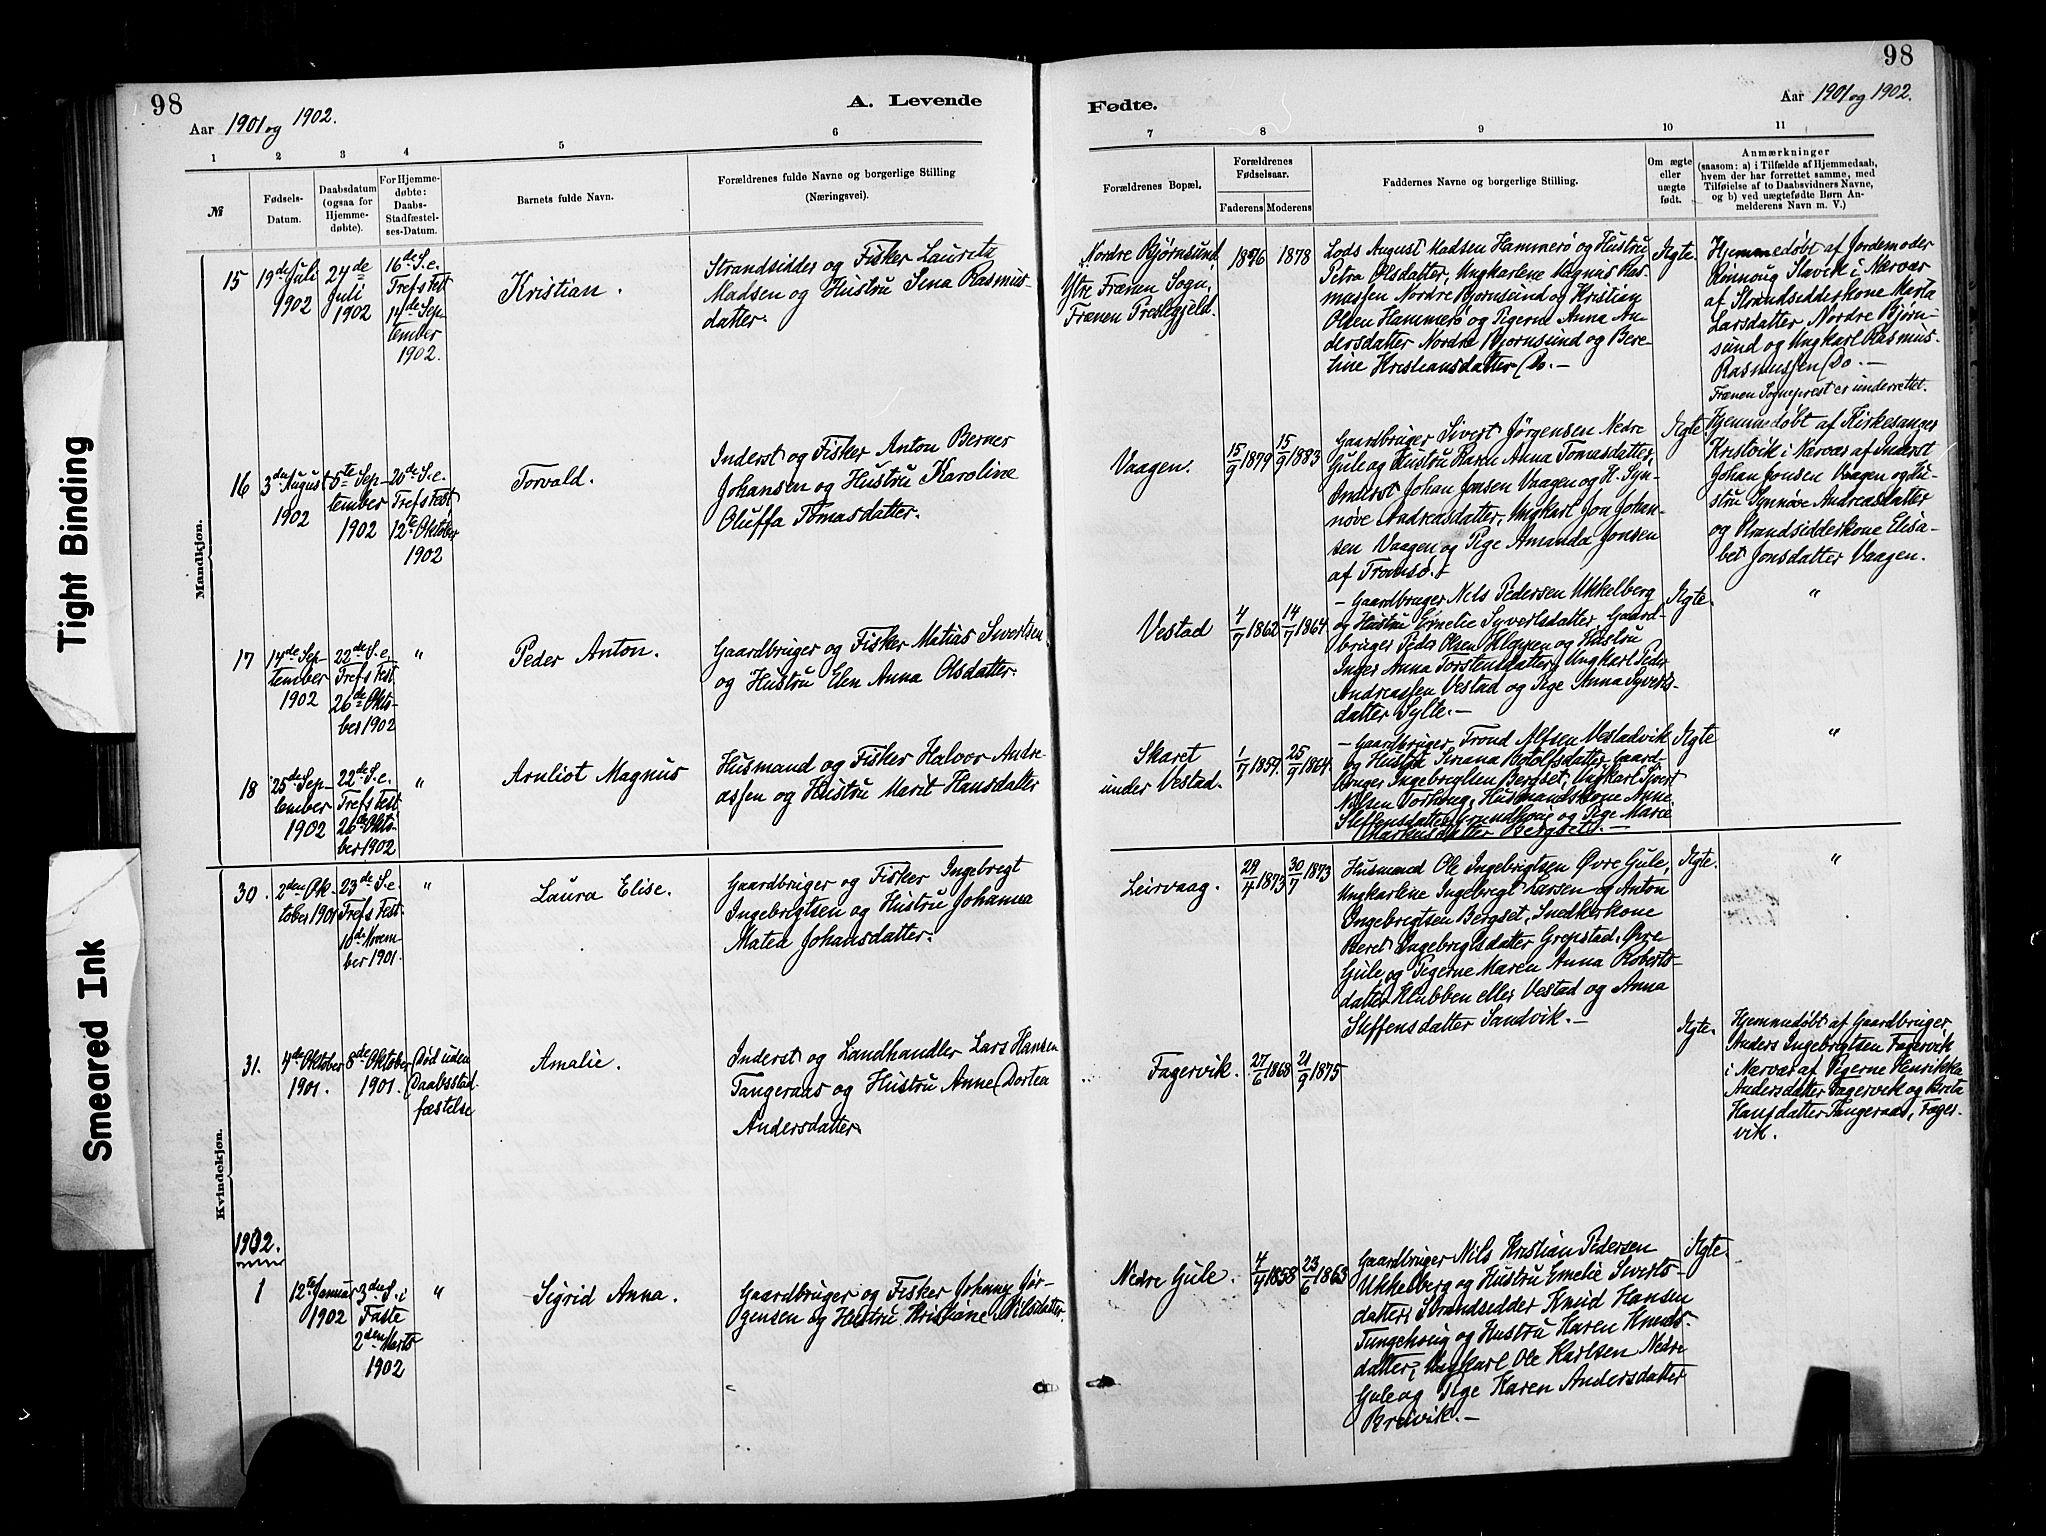 Tight Binding
Smeared Ink
98
98
Aar 1901 og 1902.
A. Levende
Fødte.
Aar 1901 og 1902.
1 2 3 4 5 6 7 8 9 10 11
№
Fødsels-
Datum.
Daabsdatum
(ogsaa for
Hjemme-
døbte).
For Hjemme-
døbte:
Daabs-
Stadfæstel-
ses-Datum.
Barnets fulde Navn.
Forældrenes fulde Navne og borgerlige Stilling
(Næringsvei).
Forældrenes Bopæl.
Forældrenes
Fødselsaar.
Faderens Moderens
Faddernes Navne og borgerlige Stilling.
Om ægte
eller
uægte
født.
Anmærkninger
(saasom: a) i Tilfælde af Hjemmedaab,
hvem der har forrettet samme, med
Tilføielse af to Daabsvidners Navne,
og b) ved uægtefødte Børn An-
melderens Navn m. V.)
Mandkjøn.
15
19de Juli
1902
24de
Juli
1902
16de S. e.
Trefs Fest
14de Sep-
tember
1902.
Kristian.
Strandsidder og Fisker Lauritz
Madsen og Hustru Sina Rasmus-
datter.
Nordre Bjørnsund,
Ytre Frænen Sogn,
Frænen Prestegjeld.
1876
1878
Lods August Madsen Hammerø og Hustru
Petra Olsdatter, Ungkarlene Magnus Ras-
mussen Nordre Bjørnsund og Kristian
Olsen Hammerø og Pigerne Anna An-
dersdatter Nordre Bjørnsund og Bere-
tine Kristiansdatter Do. —
Ægte.
Hjemmedøbt af Jordemoder
Rønnoug Slavik i Nærvær
af Strandsidderkone Marta
Larsdatter Nordre Bjørn-
sund og Ungkarl Rasmus
Rasmussen Do. —
Frænen Sogneprest er underrettet.
16
3die August
1902
5te Sep-
tember
1902
20de S. e.
Trefs Fest,
12te Oktober
1902
Torvald.
Inderst og Fisker Anton Berner
Johansen og Hustru Karoline
Oluffa Tomasdatter.
Vaagen.
15/9 1879
15/9 1883
Gaardbruger Sivert Jørgensen Nedre
Gule og Hustru Karen Anna Tomasdatter,
Inderst Johan Jonsen Vaagen og H. Syn-
nøve Andreasdatter, Ungkarl Jon Johan-
sen Vaagen og Pige Amanda Jonsen
af Tromsø. —
Ægte.
Hjemmedøbt af Kirkesanger
Kristvik i Nærvær af Inderst
Johan Jonsen Vaagen og Hu-
stru Synnøve Andreasdatter
og Strandsidderkone Elisa-
bet Jonsdatter Vaagen.
17
14de Sep-
tember
1902
22de S. e.
Trefs Fest
26de Okto-
ber 1902
"
Peder Anton.
Gaardbruger og Fisker Matias Sivertsen
og Hustru Elen Anna Olsdatter.
Vestad
4/7 1862
14/7 1864
— Gaardbruger Nils Pedersen Ukkelberg
og Hustru Emelie Syvertsdatter, Gaard-
bruger Peder Olsen Kleppen og Hustru
Inger Anna Torstensdatter, Ungkarl Peder
Andreassen Vestad og Pige Anna Syverts-
datter Sylte. —
Ægte.
"
18
25de Sep-
tember
1902
22de S. e.
Trefs Fest
26de Okto-
ber 1902
"
Arnliot Magnus
Husmand og Fisker Halvor Andre
assen og Hustru Marit Hansdatter
Skaret
under Vestad.
1/7 1857.
25/9 1864.
— Gaardbruger Trond Nilsen Vestadvik
og Hustru Sirana Botolfsdatter, Gaard-
bruger Ingebrigtsen Bergset, Ungkarl Sivert
Nilsen Torhaug, Husmandskone Anne
Steffensdatter og Pige Marie
Markusdatter Bergset. —
Ægte
"
Kvindekjøn.
30.
2den Ok-
tober 1901
23de S. e
Trefs Fest
10de Novem-
ber 1901.
"
Laura Elise.
Gaardbruger og Fisker Ingebrigt
Ingebrigtsen og Hustru Johanna
Matea Johansdatter.
Leirvaag.
29/4 1873
30/7 1873
Husmand Ole Ingebrigtsen Øvre Gule,
Ungkarlene Ingebrigt Larsen og Anton
Ingebrigtsen Bergset, Snedkerkone
Beret Ingebrigtsdatter Grepstad, Øvre
Gule og Pigerne Maren Anna Roberts-
datter Klubben eller Vestad og Anna
Steffensdatter Sandvik. —
Ægte.
"
31.
4de Oktober
1901.
8de Oktober
1901.
Død uden
Daabsstad-
fæstelse
Amalie.
Inderst og Landhandler Lars Hansen
Tangeraas og Hustru Anne Dortea
Andersdatter
Fagervik.
27/6 1868
21/9 1875
Ægte.
Hjemmedøbt af Gaardbruger
Anders Ingebrigtsen Fagervik
i Nærvær af Pigerne Henrikka
Andersdatter Fagervik og Marta
Hansdatter Tangeraas, Fager-
vik.
1902.
1
12te Januar
1902
3die S. i
Faste
2den Marts
1902
"
Sigrid Anna.
Gaardbruger og Fisker Johan Jør-
gensen og Hustru Kristiane Nilsdatter
Nedre Gule.
4/4 1858
23/6 1863
Gaardbruger Nils Kristian Pedersen
Ukkelberg og Hustru Emelie Siverts-
datter, Strandsidder Knud Hansen
Tungehoug og Hustru Karen Knuds-
datter, Ungkarl Ole Karlsen Nedre
Gule og Pige Karen Andersdatter
Breivik. —
Ægte.